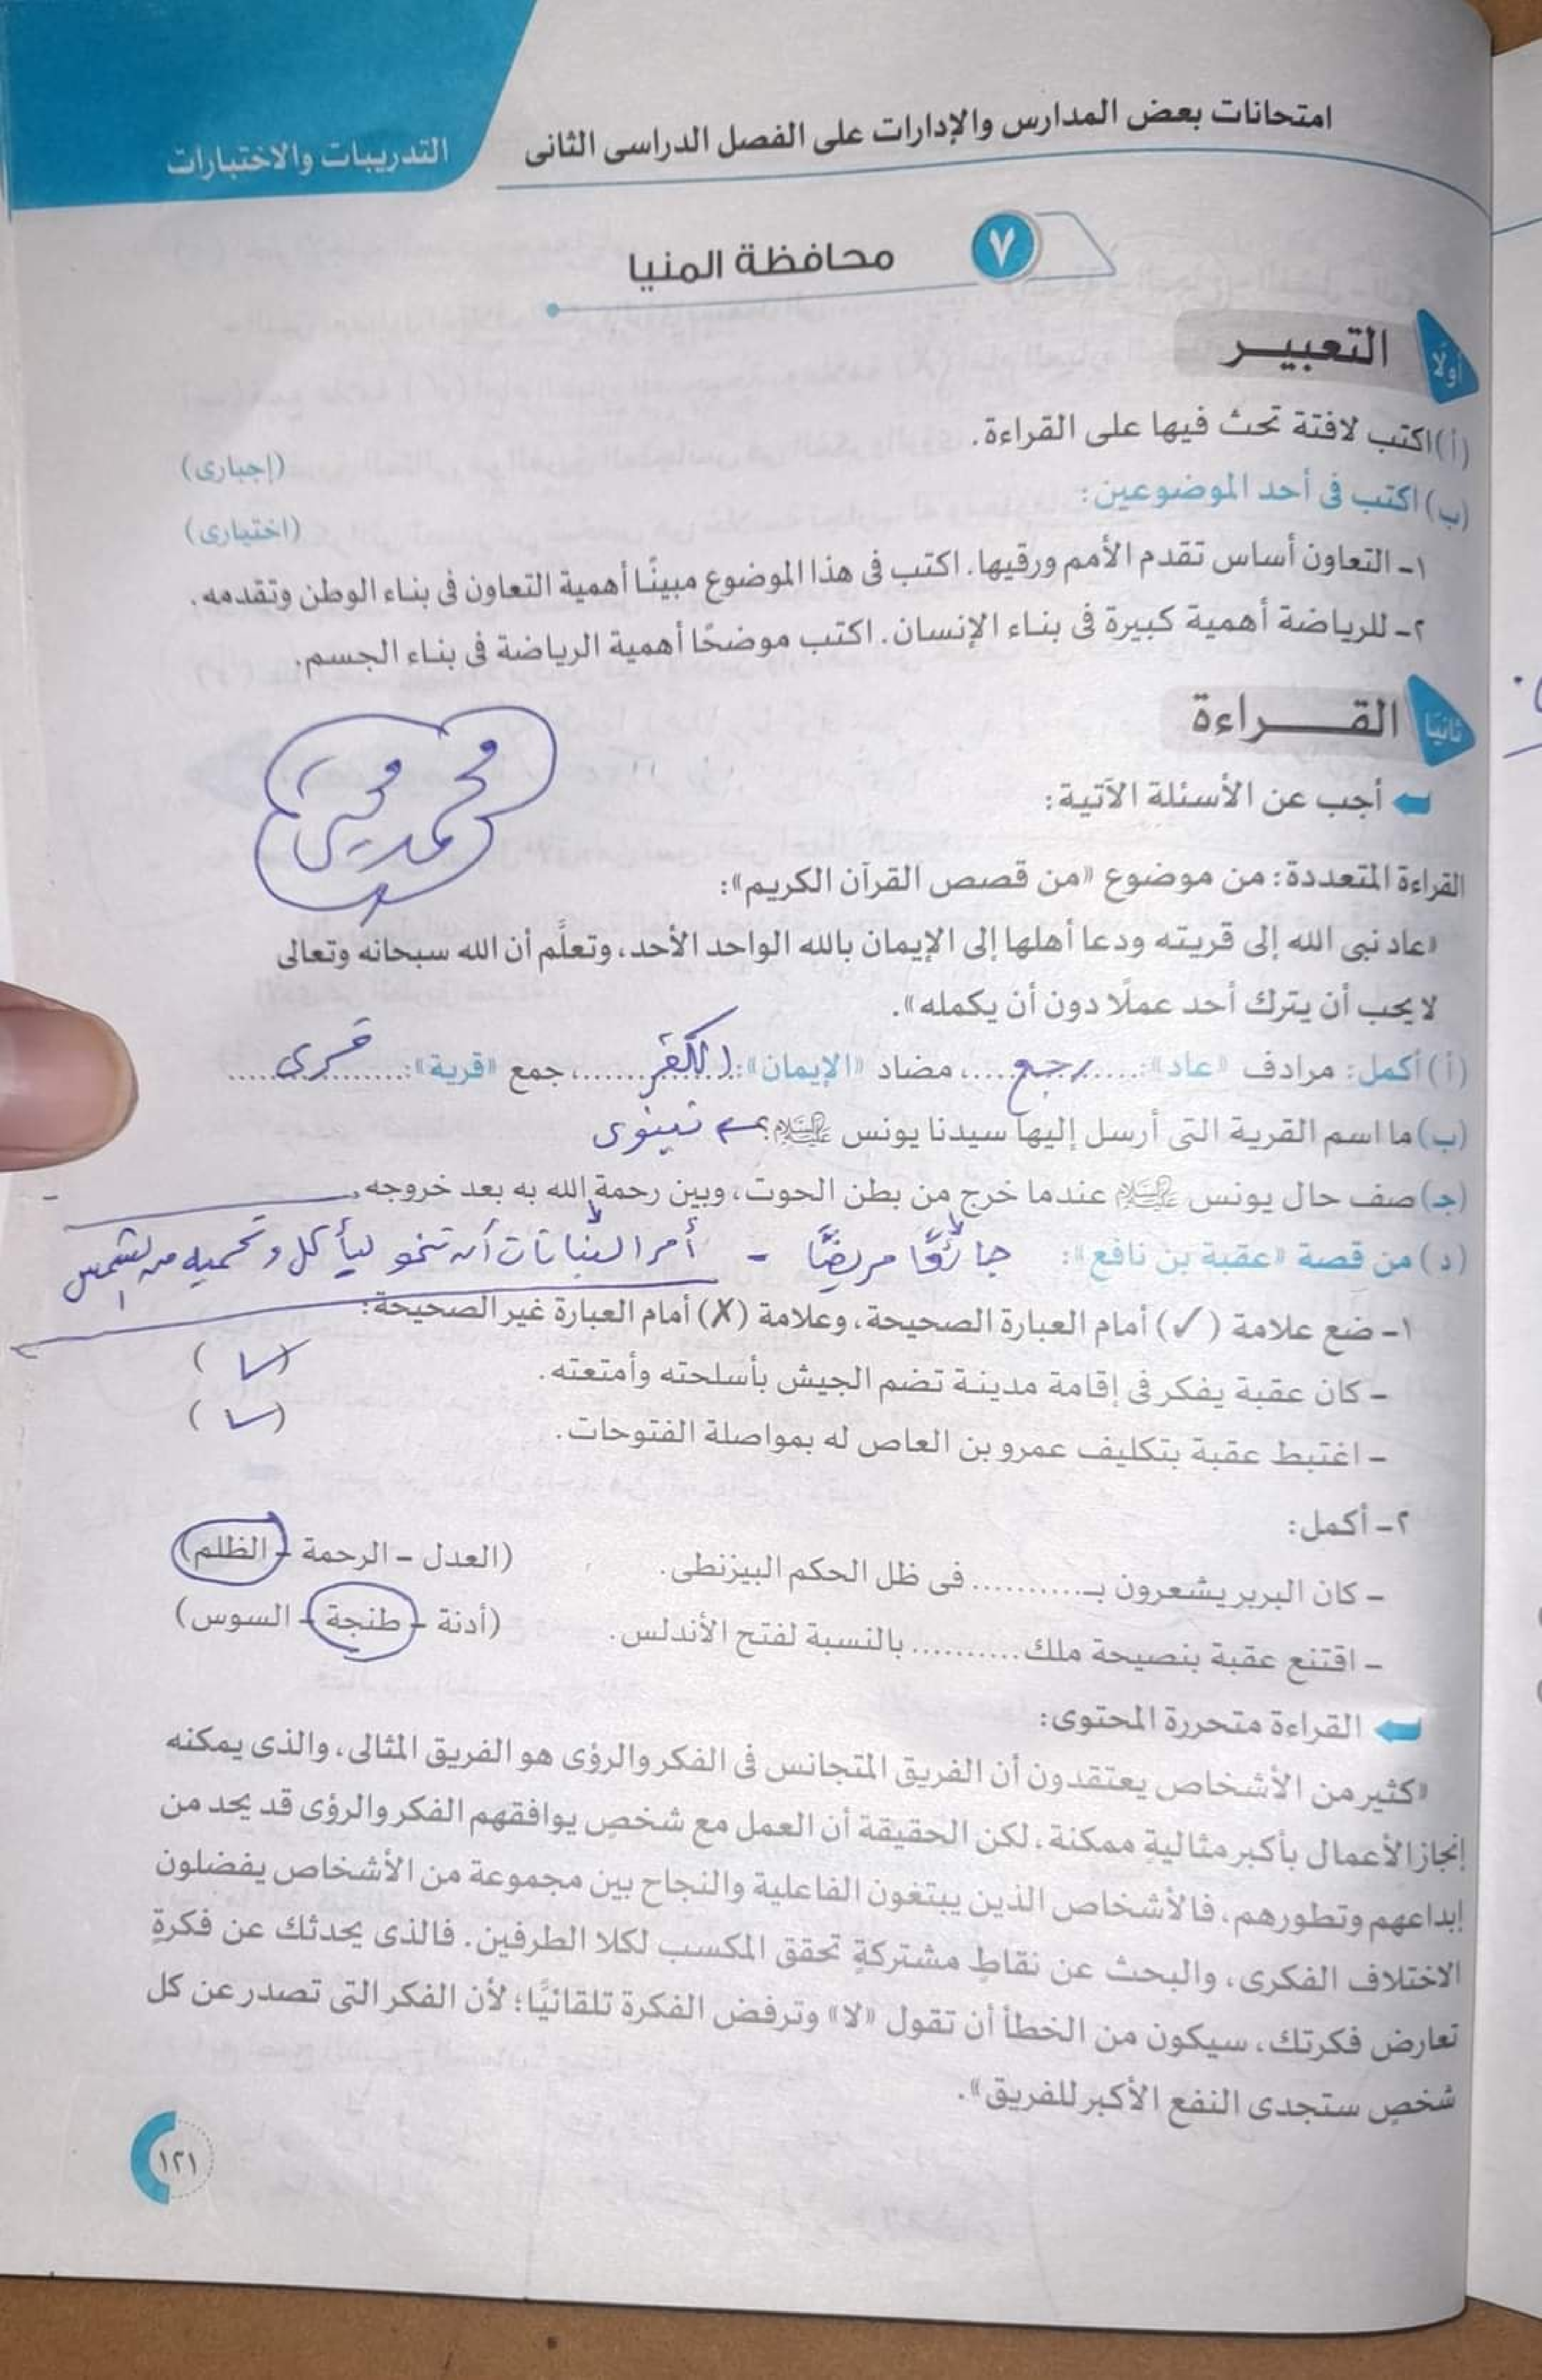 امتحانات بعض المدارس والإدارات على الفصل الدراسى الثانى
التدريبات والاختبارات
٧ محافظة المنيا
أولًا التعبيـر
(أ) اكتب لافتة تحث فيها على القراءة. (إجبارى)
(ب) اكتب فى أحد الموضوعين: (اختيارى)
١- التعاون أساس تقدم الأمم ورقيها. اكتب فى هذا الموضوع مبينًا أهمية التعاون فى بناء الوطن وتقدمه.
٢- للرياضة أهمية كبيرة فى بناء الإنسان. اكتب موضحًا أهمية الرياضة فى بناء الجسم.
ثانيًا القـــراءة
أجب عن الأسئلة الآتية:
محمد
القراءة المتعددة: من موضوع «من قصص القرآن الكريم»:
«عاد نبى الله إلى قريته ودعا أهلها إلى الإيمان بالله الواحد الأحد، وتعلَّم أن الله سبحانه وتعالى
لا يحب أن يترك أحد عملًا دون أن يكمله».
(أ) أكمل: مرادف «عاد»: ..... رجع ....، مضاد «الإيمان»: الكفر ......، جمع «قرية»: قرى ......
(ب) ما اسم القرية التى أرسل إليها سيدنا يونس عليه السلام؟ ← نينوى
(جـ) صف حال يونس عليه السلام عندما خرج من بطن الحوت، وبين رحمة الله به بعد خروجه.
(د) من قصة «عقبة بن نافع»: جائعًا مريضًا - أمر النباتات أن تنمو ليأكل وتحميه من الشمس
١- ضع علامة (✓) أمام العبارة الصحيحة، وعلامة (✗) أمام العبارة غير الصحيحة:
- كان عقبة يفكر فى إقامة مدينة تضم الجيش بأسلحته وأمتعته. (✓)
- اغتبط عقبة بتكليف عمرو بن العاص له بمواصلة الفتوحات. (✓)
٢- أكمل:
- كان البربر يشعرون بـ........... فى ظل الحكم البيزنطى. (العدل - الرحمة - الظلم)
- اقتنع عقبة بنصيحة ملك........... بالنسبة لفتح الأندلس. (أدنة - طنجة - السوس)
القراءة متحررة المحتوى:
«كثير من الأشخاص يعتقدون أن الفريق المتجانس فى الفكر والرؤى هو الفريق المثالى، والذى يمكنه
إنجاز الأعمال بأكبر مثاليةٍ ممكنة، لكن الحقيقة أن العمل مع شخصٍ يوافقهم الفكر والرؤى قد يحد من
إبداعهم وتطورهم، فالأشخاص الذين يبتغون الفاعلية والنجاح بين مجموعة من الأشخاص يفضلون
الاختلاف الفكرى، والبحث عن نقاطٍ مشتركةٍ تحقق المكسب لكلا الطرفين. فالذى يحدثك عن فكرةٍ
تعارض فكرتك، سيكون من الخطأ أن تقول «لا» وترفض الفكرة تلقائيًّا؛ لأن الفكر التى تصدر عن كل
شخصٍ ستجدى النفع الأكبر للفريق».
١٢١